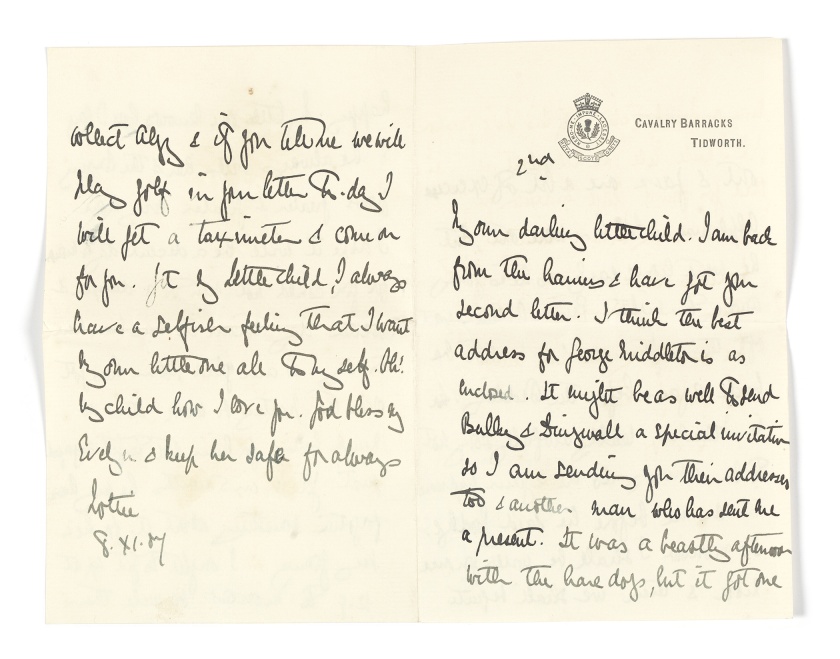 CAVALRY BARRACKS
TIDWORTH.
2nd
My own darling little child. I am back
from the harriers & have got your
second letter. I think the best
address for George Middleton is as
enclosed. It might be as well to send
Bulley & Dingwall a special invitation
so I am sending you their addresses
too & another man who has sent me
a present. It was a beastly afternoon
with the hare dogs, but it got one
collect Algy & if you tell me we will
play golf in your letter to-day I
will get a taximeter & come on
for you. my little child, I always
have a selfish feeling that I want
my own little one all to myself. Oh!
my child how I love you. God bless my
Evelyn & keep her safe for always
8.XI.07